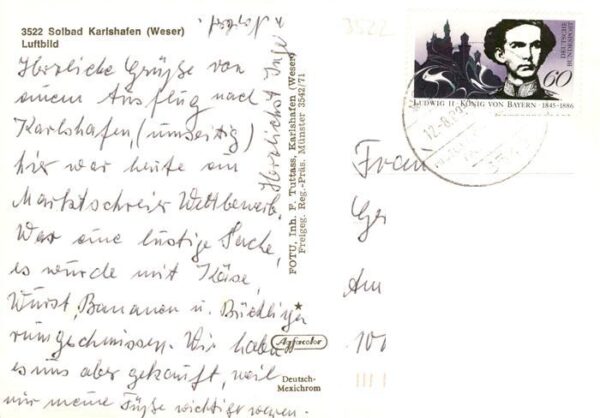 3522 Solbad Karlshafen (Weser)
Luftbild
Herzliche Grüße von
einem Ausflug nach
Karlshafen, (umseitig)
hier war heute ein
Marktschreier Wettbewerb.
War eine lustige Sache,
es wurde mit Käse,
Wurst, Bananen u. Bücklinge
rumgeschmissen. Wir haben
es uns aber gekauft, weil
mir meine Füße wichtiger waren.
Herzlichst Inge
FOTU, Inh. F. Tuttass, Karlshafen (Weser)
Freigeg. Reg.-Präs. Münster 2542/71
Agfacolor
Deutsch-
Mexichrom
3522
DEUTSCHE
BUNDESPOST
60
LUDWIG II · KÖNIG VON BAYERN · 1845-1886
Frau
Ge
Am